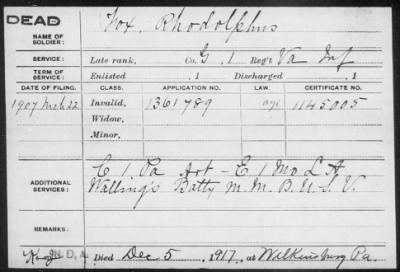 DEAD
NAME OF SOLDIER: Fox, Rhodolphus
SERVICE: Late rank, Co. G, 1 Reg't Va Inf
TERM OF SERVICE: Enlisted , 1 Discharged , 1
DATE OF FILING. CLASS. APPLICATION NO. LAW. CERTIFICATE NO.
1907 Mch 22 Invalid, 1361789 1145005
Widow,
Minor,
C 1 Pa Art - E 1 Mo L A
ADDITIONAL SERVICES: Walling's Batty M. M. B. U. S. V.
REMARKS:
N. D. A. Died Dec 5, 1917, at Wilkinsburg Pa.